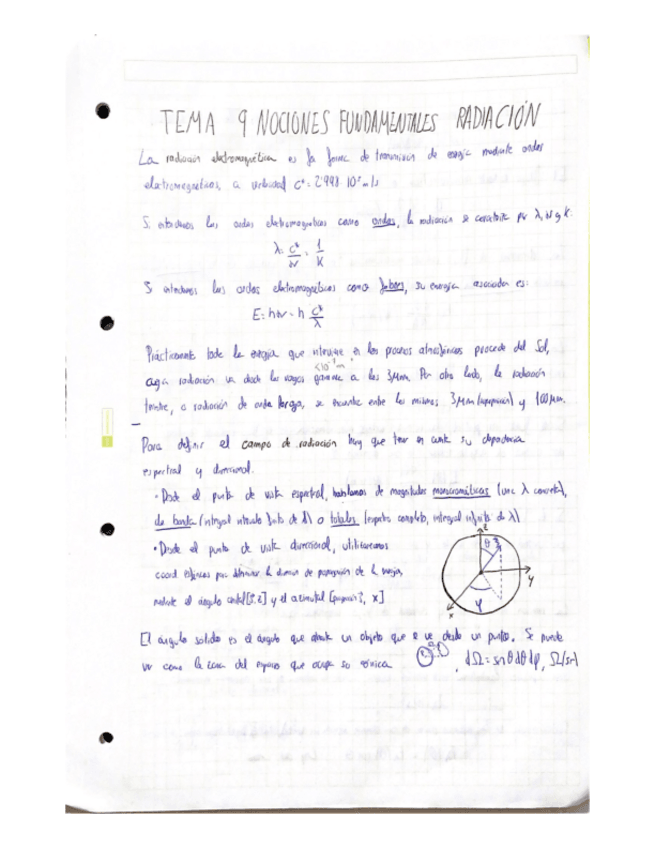 TEMA 9 NOCIONES FUNDAMENTALES RADIACIÓN
La radiación electromagnética es la forma de transmisión de energía mediante ondas
electromagnéticas, a velocidad c* = 2'998 10⁸ m/s
Si entendemos las ondas electromagnéticas como ondas, la radiación se caracteriza por λ, k.
λ = c*/ν = 1/K
Si entendemos las ondas electromagnéticas como, su energía asociada es:
E = hν = h c*/λ
Prácticamente toda la energía que en los procesos atmosféricos procede del Sol,
cuya radiación va desde los rayos gamma a los 3μm. Por otro lado, la radiación
terrestre, o radiación de onda larga, se encuentra entre los mismos 3μm y 100μm.
Para definir el campo de radiación hay que tener en cuenta su dependencia
espectral y direccional.
• Desde el punto de vista espectral, hablamos de magnitudes monocromáticas (una λ concreta),
de banda (integral de λ) o totales (espectro completo, integral de λ)
• Desde el punto de vista direccional, utilizaremos
coord esféricas para determinar la dirección de propagación de la energía,
mediante el ángulo cenital y el azimutal
z
θ
y
x
φ
El ángulo sólido es el ángulo que abarca un objeto que se ve desde un punto. Se puede
ver como la zona del espacio que ocupa
dΩ = senθ dθ dφ,